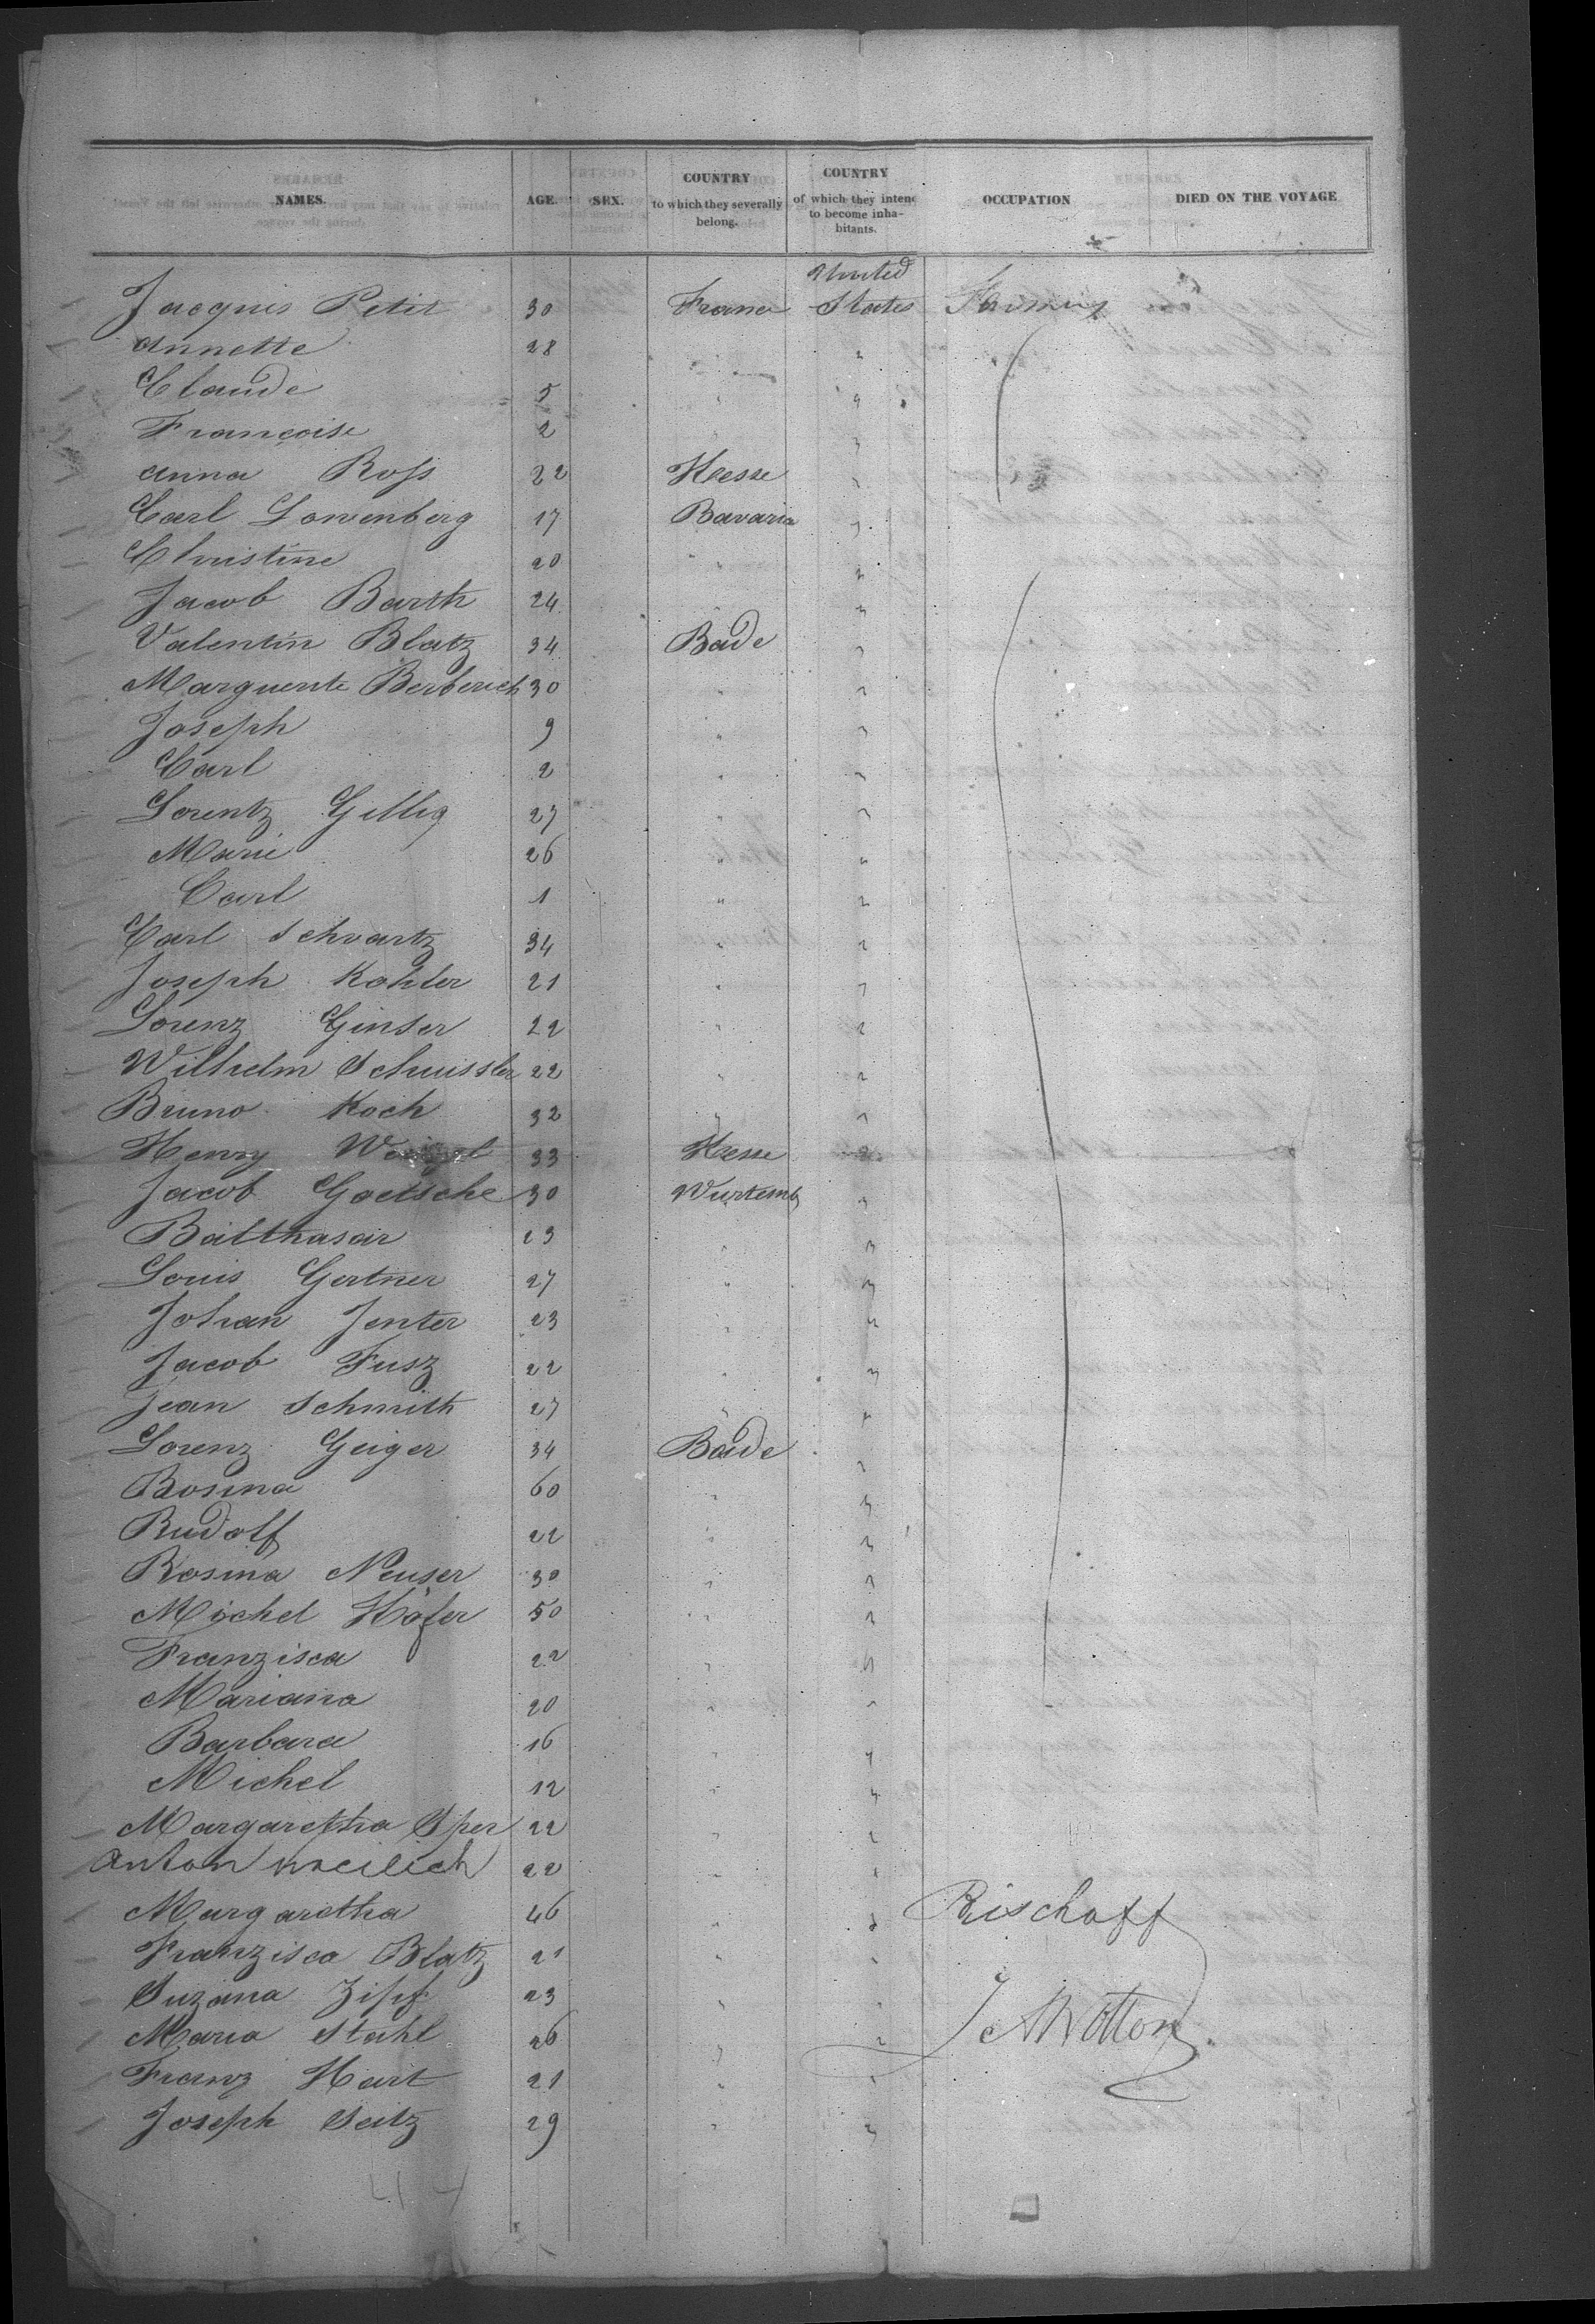 NAMES. AGE. SEX. COUNTRY to which they severally belong. COUNTRY of which they intend to become inhabitants. OCCUPATION DIED ON THE VOYAGE
United
Jacques Petit 30 France States Farmers
Annette 28 " "
Claude 5 " "
Françoise 2 " "
Anna Ross 22 Hesse "
Carl Lowenberg 17 Bavaria "
Christine 20 " "
Jacob Barth 24 " "
Valentin Blatz 34 Bade "
Marguerite Berberich 30 " "
Joseph 9 " "
Carl 2 " "
Lorentz Gillig 27 " "
Marie 26 " "
Carl 1 " "
Carl Schvartz 34 " "
Joseph Kohler 21 " "
Lorenz Ginser 22 " "
Wilhelm Schuissler 22 " "
Bruno Koch 32 " "
Henry 33 Hesse "
Jacob Goetsche 30 Wurtemb "
Balthasar 23 " "
Louis Gertner 27 " "
Johan Jenter 23 " "
Jacob Fusz 22 " "
Jean Schmith 27 " "
Lorenz Geiger 34 Bade "
Rosina 60 " "
Rudolf 22 " "
Rosina Neuser 30 " "
Michel Höfer 50 " "
Franzisca 22 " "
Mariana 20 " "
Barbara 16 " "
Michel 12 " "
Margaretha Sper 22 " "
Anton 22 " "
Margaretha 46 " " Bischoff
Franzisca Blatz 21 " "
Suzana Zipf 23 " "
Maria Stahl 26 " " J A Wotton
Franz Hart 21 " "
Joseph Seitz 29 " "
44